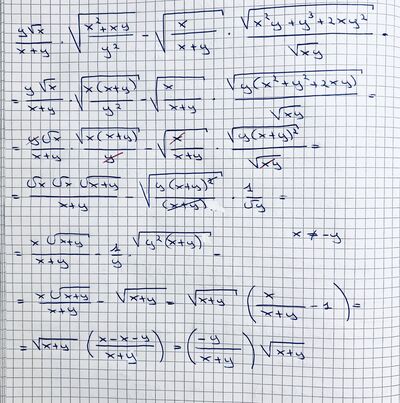 y√x/(x+y) · √((x²+xy)/y²) − √(x/(x+y)) · √(x²y+y³+2xy²)/√(xy) =
= y√x/(x+y) · √(x(x+y)/y²) − √(x/(x+y)) · √(y(x²+y²+2xy))/√(xy) =
= y√x/(x+y) · √(x(x+y))/y − √(x/(x+y)) · √(y(x+y)²)/√(xy) =
= √x √x √(x+y)/(x+y) − √(y(x+y)²/(x+y)) · 1/√y =
= x√(x+y)/(x+y) − 1/y · √(y²(x+y)) = x ≠ −y
= x√(x+y)/(x+y) − √(x+y) = √(x+y) (x/(x+y) − 1) =
= √(x+y) ((x−x−y)/(x+y)) = (−y/(x+y)) √(x+y)